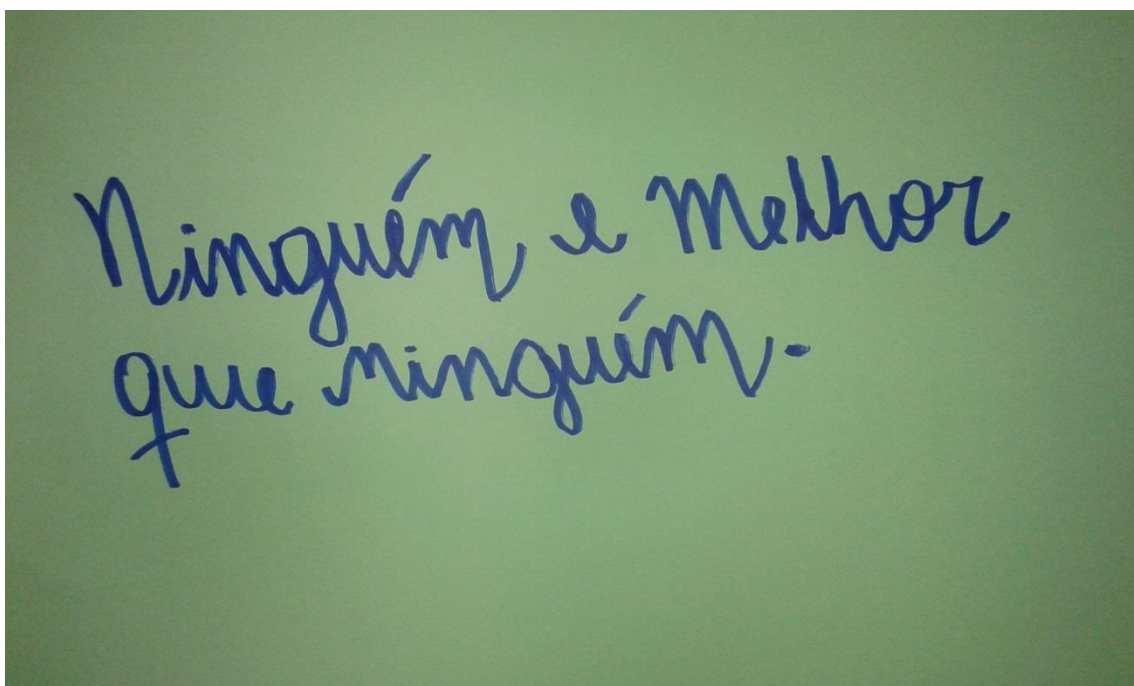 Ninguém e Melhor
que ninguém.